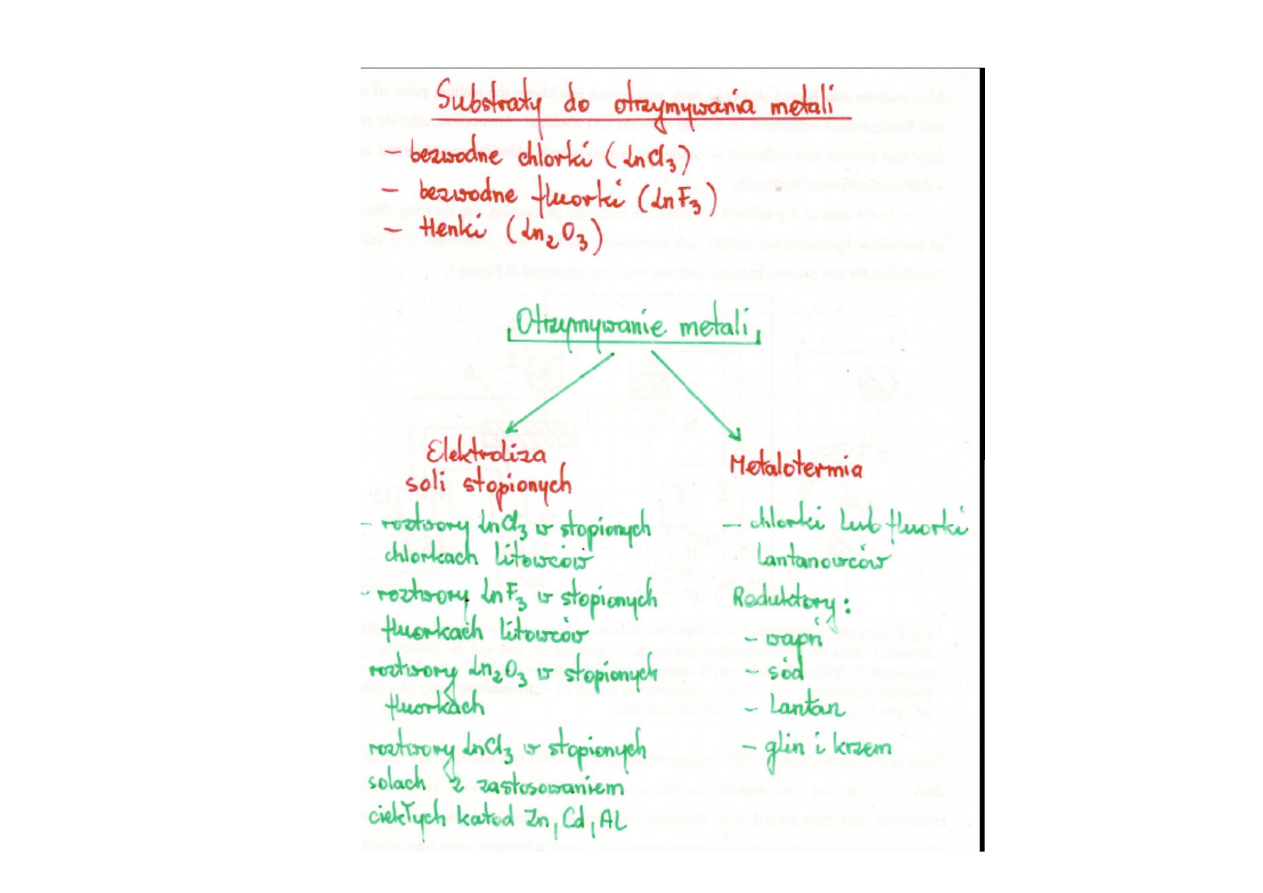 Substraty do otrzymywania metali
- bezwodne chlorki (LnCl₃)
- bezwodne fluorki (LnF₃)
- tlenki (Ln₂O₃)
Otrzymywanie metali
Elektroliza
soli stopionych
- roztwory LnCl₃ w stopionych
chlorkach litowców
- roztwory LnF₃ w stopionych
fluorkach litowców
roztwory Ln₂O₃ w stopionych
fluorkach
roztwory LnCl₃ w stopionych
solach z zastosowaniem
ciekłych katod Zn, Cd, Al
Metalotermia
- chlorki lub fluorki
lantanowców
Reduktory:
- wapń
- sód
- lantan
- glin i krzem